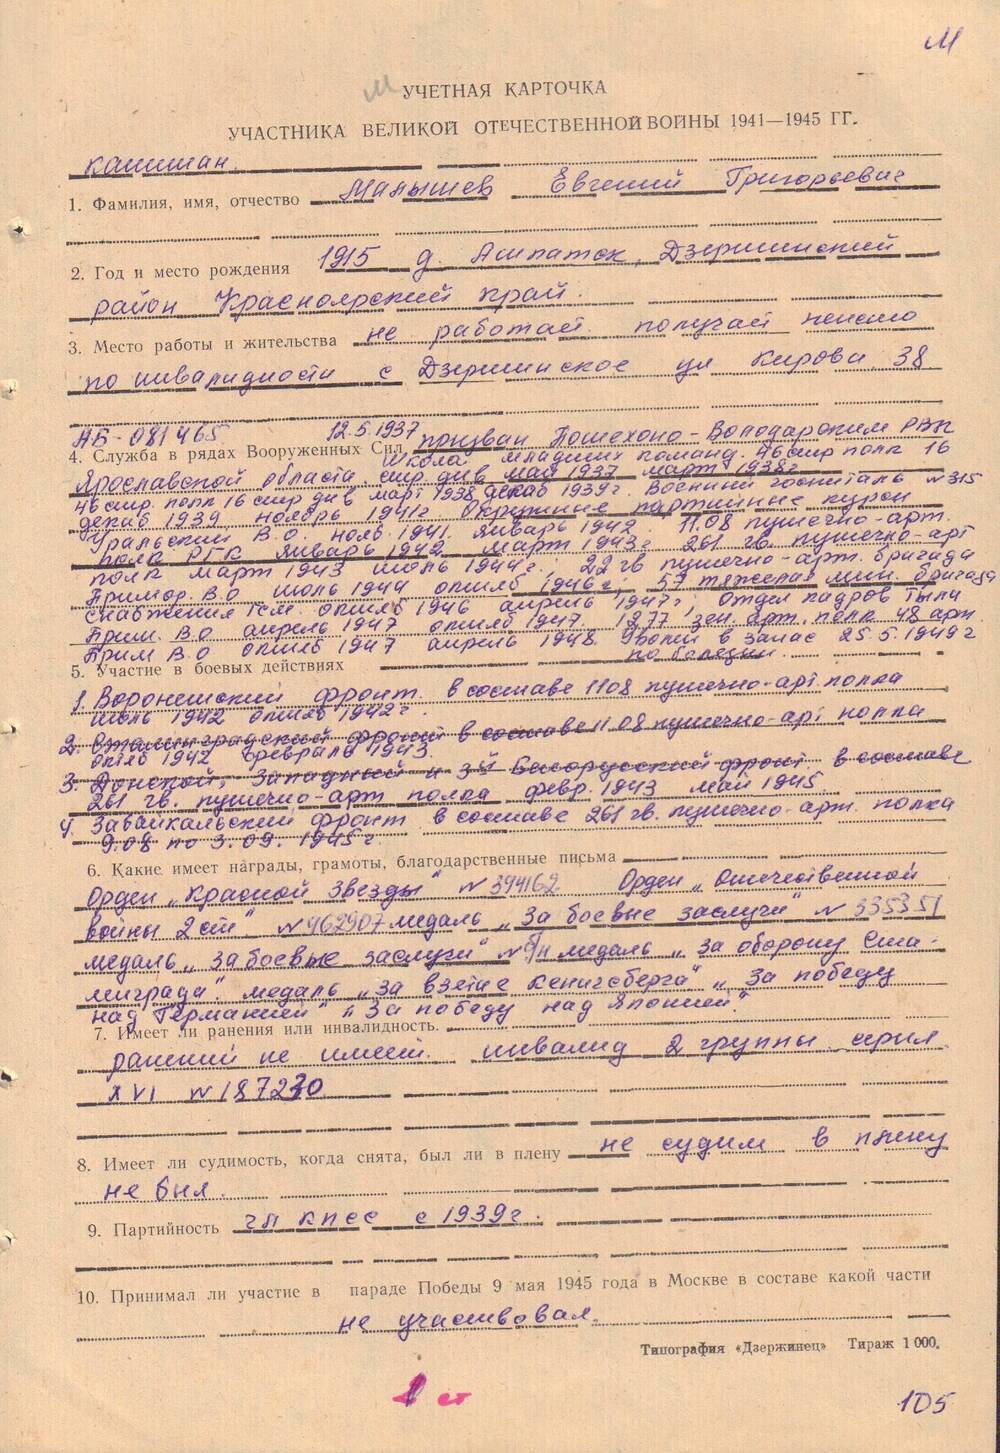 М
М
УЧЕТНАЯ КАРТОЧКА
УЧАСТНИКА ВЕЛИКОЙ ОТЕЧЕСТВЕННОЙ ВОЙНЫ 1941—1945 ГГ.
капитан.
1. Фамилия, имя, отчество Малышев Евгений Григорьевич
2. Год и место рождения 1915 д. Ашпаток, Дзержинский
район Красноярский край.
3. Место работы и жительства не работает. получает пенсию
по инвалидности с Дзержинское ул Кирова 38
НБ-081465 12.5.1937 призван Пошехоно-Володарским РВК
4. Служба в рядах Вооруженных Сил
Ярославской области. Школа младших команд. 46 стр полк 16
стр. див май 1937 март 1938г
46 стр. полк 16 стр див март 1938 декаб 1939г. Военный госпиталь №315
декаб 1939 ноябрь 1941г. Окружные партийные курсы
Уральский В.О. нояб. 1941. январь 1942. 1108 пушечно-арт.
полк РГК январь 1942 март 1943г 261 гв. пушечно-арт
полк март 1943 июль 1944г; 22 гв пушечно-арт. бригада
Примор. В.О июль 1944 октяб 1946г; 57 тяжелая мин. бригада
снабжения гсм. октяб 1946 апрель 1947г; Отдел кадров тыла
Прим. В.О апрель 1947 октяб 1947. 1277 зен. арт. полк 48 арт.
Прим В.О октяб 1947 апрель 1948. Уволен в запас 25.5.1949г
по болезни.
5. Участие в боевых действиях
1. Воронежский фронт. в составе 1108 пушечно-арт. полка
июль 1942 октяб 1942г.
2. Сталинградский фронт в составе 1108 пушечно-арт полка
октяб 1942 февраль 1943.
3. Донской, Западный и 3й Белорусский фронт в составе
261 гв. пушечно-арт полка февр. 1943 май 1945.
4. Забайкальский фронт в составе 261 гв. пушечно-арт. полка
9.08 по 3.09. 1945г.
6. Какие имеет награды, грамоты, благодарственные письма
Орден „Красной Звезды" № 394162. Орден „Отечественной
войны 2 ст" №962907 медаль „За боевые заслуги" № 335351
медаль „За боевые заслуги" № б/н медаль „За оборону Ста-
линграда". медаль „За взятие Кенигсберга" „За победу
над Германией" „За победу над Японией".
7. Имеет ли ранения или инвалидность.
ранений не имеет. инвалид 2 группы серия
XVI №187230
8. Имеет ли судимость, когда снята, был ли в плену не судим в плену
не был.
9. Партийность чл КПСС с 1939г.
10. Принимал ли участие в параде Победы 9 мая 1945 года в Москве в составе какой части
не участвовал.
Типография «Дзержинец» Тираж 1 000.
1 ст
105